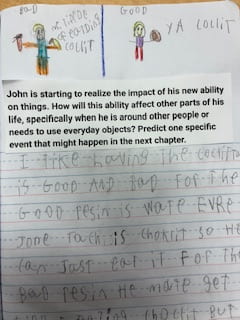 BAD
GOOD
YA COLLIT
COLLIT
John is starting to realize the impact of his new ability
on things. How will this ability affect other parts of his
life, specifically when he is around other people or
needs to use everyday objects? Predict one specific
event that might happen in the next chapter.
I like having the
is GOOD AND BaD FOr The
GOOD resin is Wate EVRe
Jone Tach is choklit so He
can Jast eat it For The
BaD resin He mait get
eating choclit But